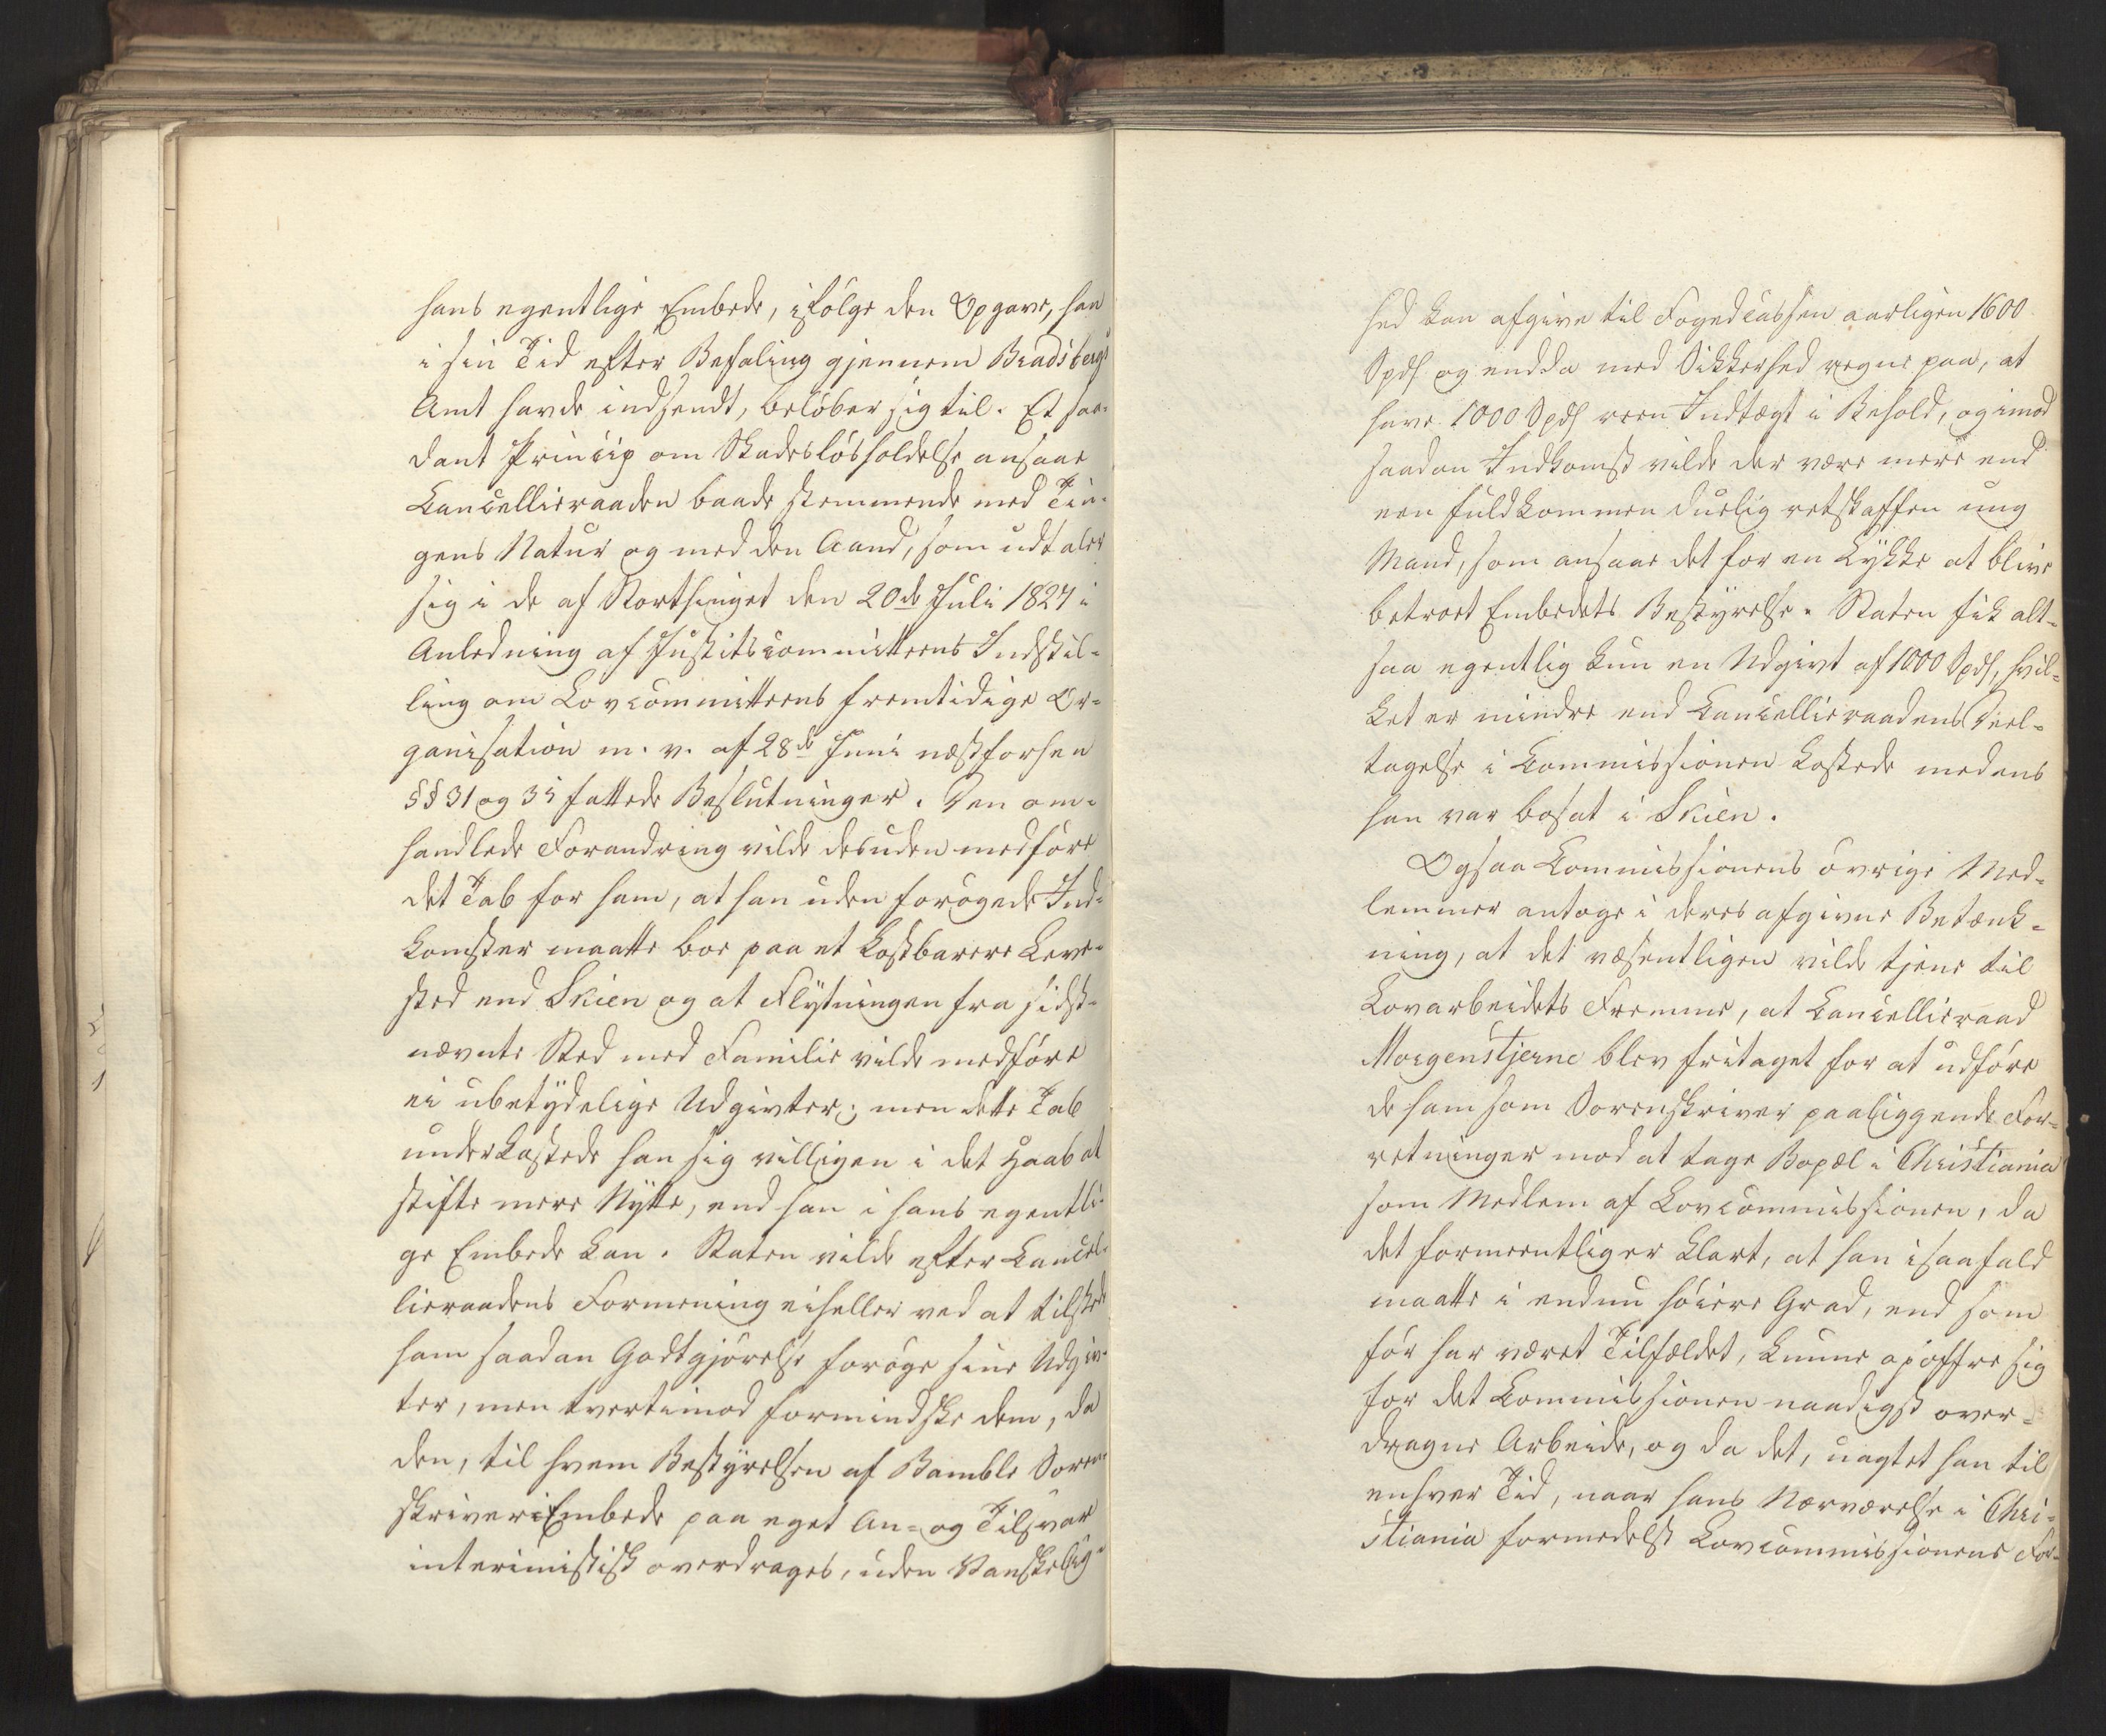 hans egentlige Embede, ifølge den Opgave, han
i sin Tid efter Befaling gjennem Bradsbergs
Amt havde indsendt, beløber sig til. Et saa-
dant Princip om Skadesløsholdelse ansaae
Cancellieraaden baade stemmende med Tin-
gens Natur og med den Aand, som udtaler
sig i de af Storthinget den 20de Juli 1827 i
Anledning af Justitscommitteens Indstil-
ling om Lovcommitteens fremtidige Or-
ganisation m. v. af 28de Juni næstforhen
§§ 31 og 35 fattede Beslutninger. Den om-
handlede Forandring vilde desuden medføre
det Tab for ham, at han uden forøgede Ind-
komster maatte boe paa et kostbarere Leve-
sted end Skien og at Flytningen fra sidst-
nævnte Sted med Familie vilde medføre
ei ubetydelige Udgivter; men dette Tab
underkastede han sig villigen i det Haab at
stifte mere Nytte, end han i hans egentli-
ge Embede kan. Staten vilde efter Cancel-
lieraadens Formening eiheller ved at tilstede
ham saadan Godtgjørelse forøge sine Udgiv-
ter, men tvertimod formindske dem, da
den, til hvem Bestyrelsen af Bamble Soren-
skriveriEmbede paa eget An- og Tilsvar
interimistisk overdrages, uden Vanskelig-
hed kan afgive til Fogedcassen aarligen 1600
Spds og endda med Sikkerhed regne paa, at
have 1000 Spds reen Indtægt i Behold, og imod
saadan Indkomst vilde der være mere end
een fuldkommen duelig retskaffen ung
Mand, som ansaae det for en Lykke at blive
betroet Embedets Bestyrelse. Staten fik alt-
saa egentlig kun en Udgivt af 1000 Spds, hvil-
ket er mindre end Cancellieraadens Deel-
tagelse i Commissionen kostede medens
han var bosat i Skien.
Ogsaa Commissionens øvrige Med-
lemmer antoge i deres afgivne Betænk-
ning, at det væsentligen vilde tjene til
Lovarbeidets Fremme, at Cancellieraad
Morgenstjerne blev fritaget for at udføre
de ham som Sorenskriver paaliggende For-
retninger mod at tage Bopæl i Christiania
som Medlem af Lovcommissionen, da
det formeentlig er klart, at han isaafald
maatte i endnu høiere Grad, end som
før har været Tilfældet, kunne opoffre sig
for det Commissionen naadigst over-
dragne Arbeide, og da det, uagtet han til
enhver Tid, naar hans Nærværelse i Chri-
stiania formedelst Lovcommissionens For-